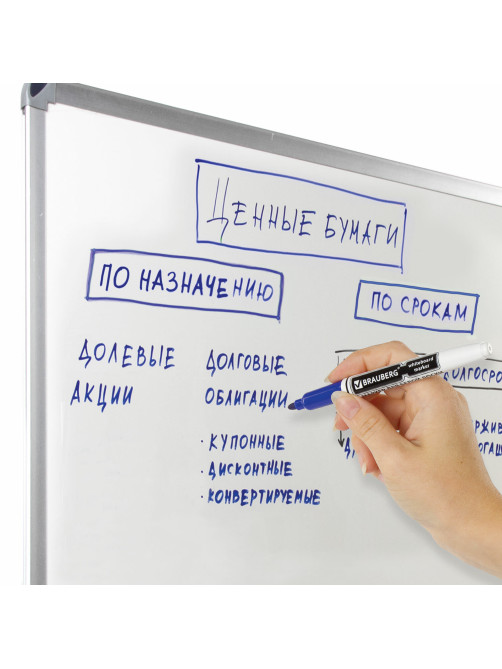 ЦЕННЫЕ БУМАГИ
ПО НАЗНАЧЕНИЮ
ПО СРОКАМ
ДОЛЕВЫЕ
АКЦИИ
ДОЛГОВЫЕ
ОБЛИГАЦИИ
· КУПОННЫЕ
· ДИСКОНТНЫЕ
· КОНВЕРТИРУЕМЫЕ
BRAUBERG
whiteboard
marker